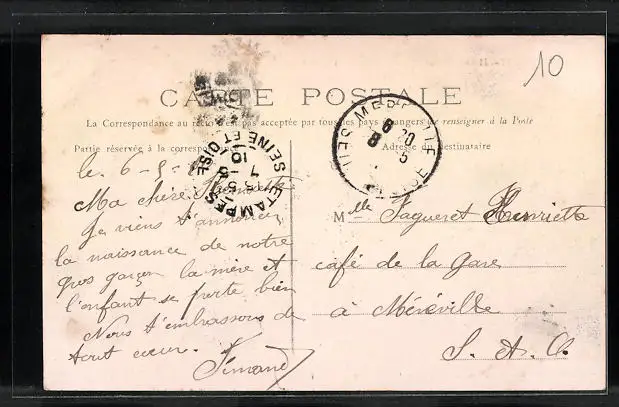 10
CARTE POSTALE
La Correspondance au recto n'est pas acceptée par tous les pays étrangers (se renseigner à la Poste
Partie réservée à la correspondance
Adresse du destinataire
le 6-5-
Ma chère Henriette
Je viens t'annoncer
la naissance de notre
gros garçon la mère et
l'enfant se porte bien
Nous t'embrassons de
tout cœur.
Mlle Fagueret Henriette
café de la gare
à Méréville
S. & O.
ETAMPES
SEINE ET OISE
7
5-5
10
8
20
5